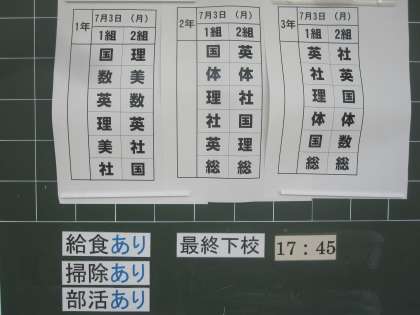 1年 7月3日 (月)
1組 2組
国 理
数 美
英 数
理 英
美 社
社 国
2年 7月3日 (月)
1組 2組
国 英
体 体
理 社
社 国
英 理
総 総
3年 7月3日 (月)
1組 2組
英 社
社 英
理 国
体 体
国 数
総 総
給食あり 最終下校 17:45
掃除あり
部活あり